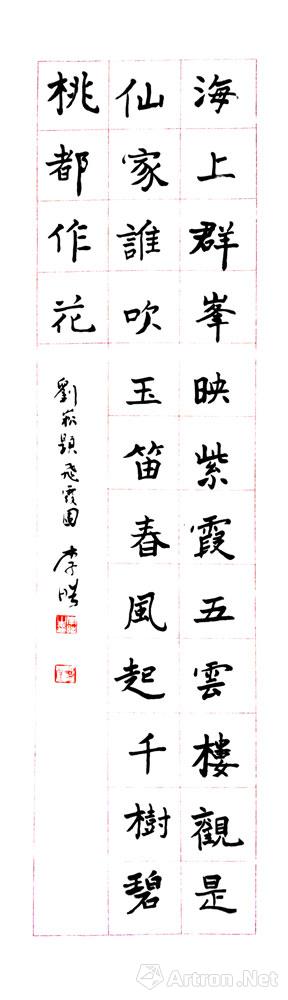 海上群峯映紫霞五雲樓觀是
仙家誰吹玉笛春風起千樹碧
桃都作花
劉崧題飛霞圖 李
Artron.Net